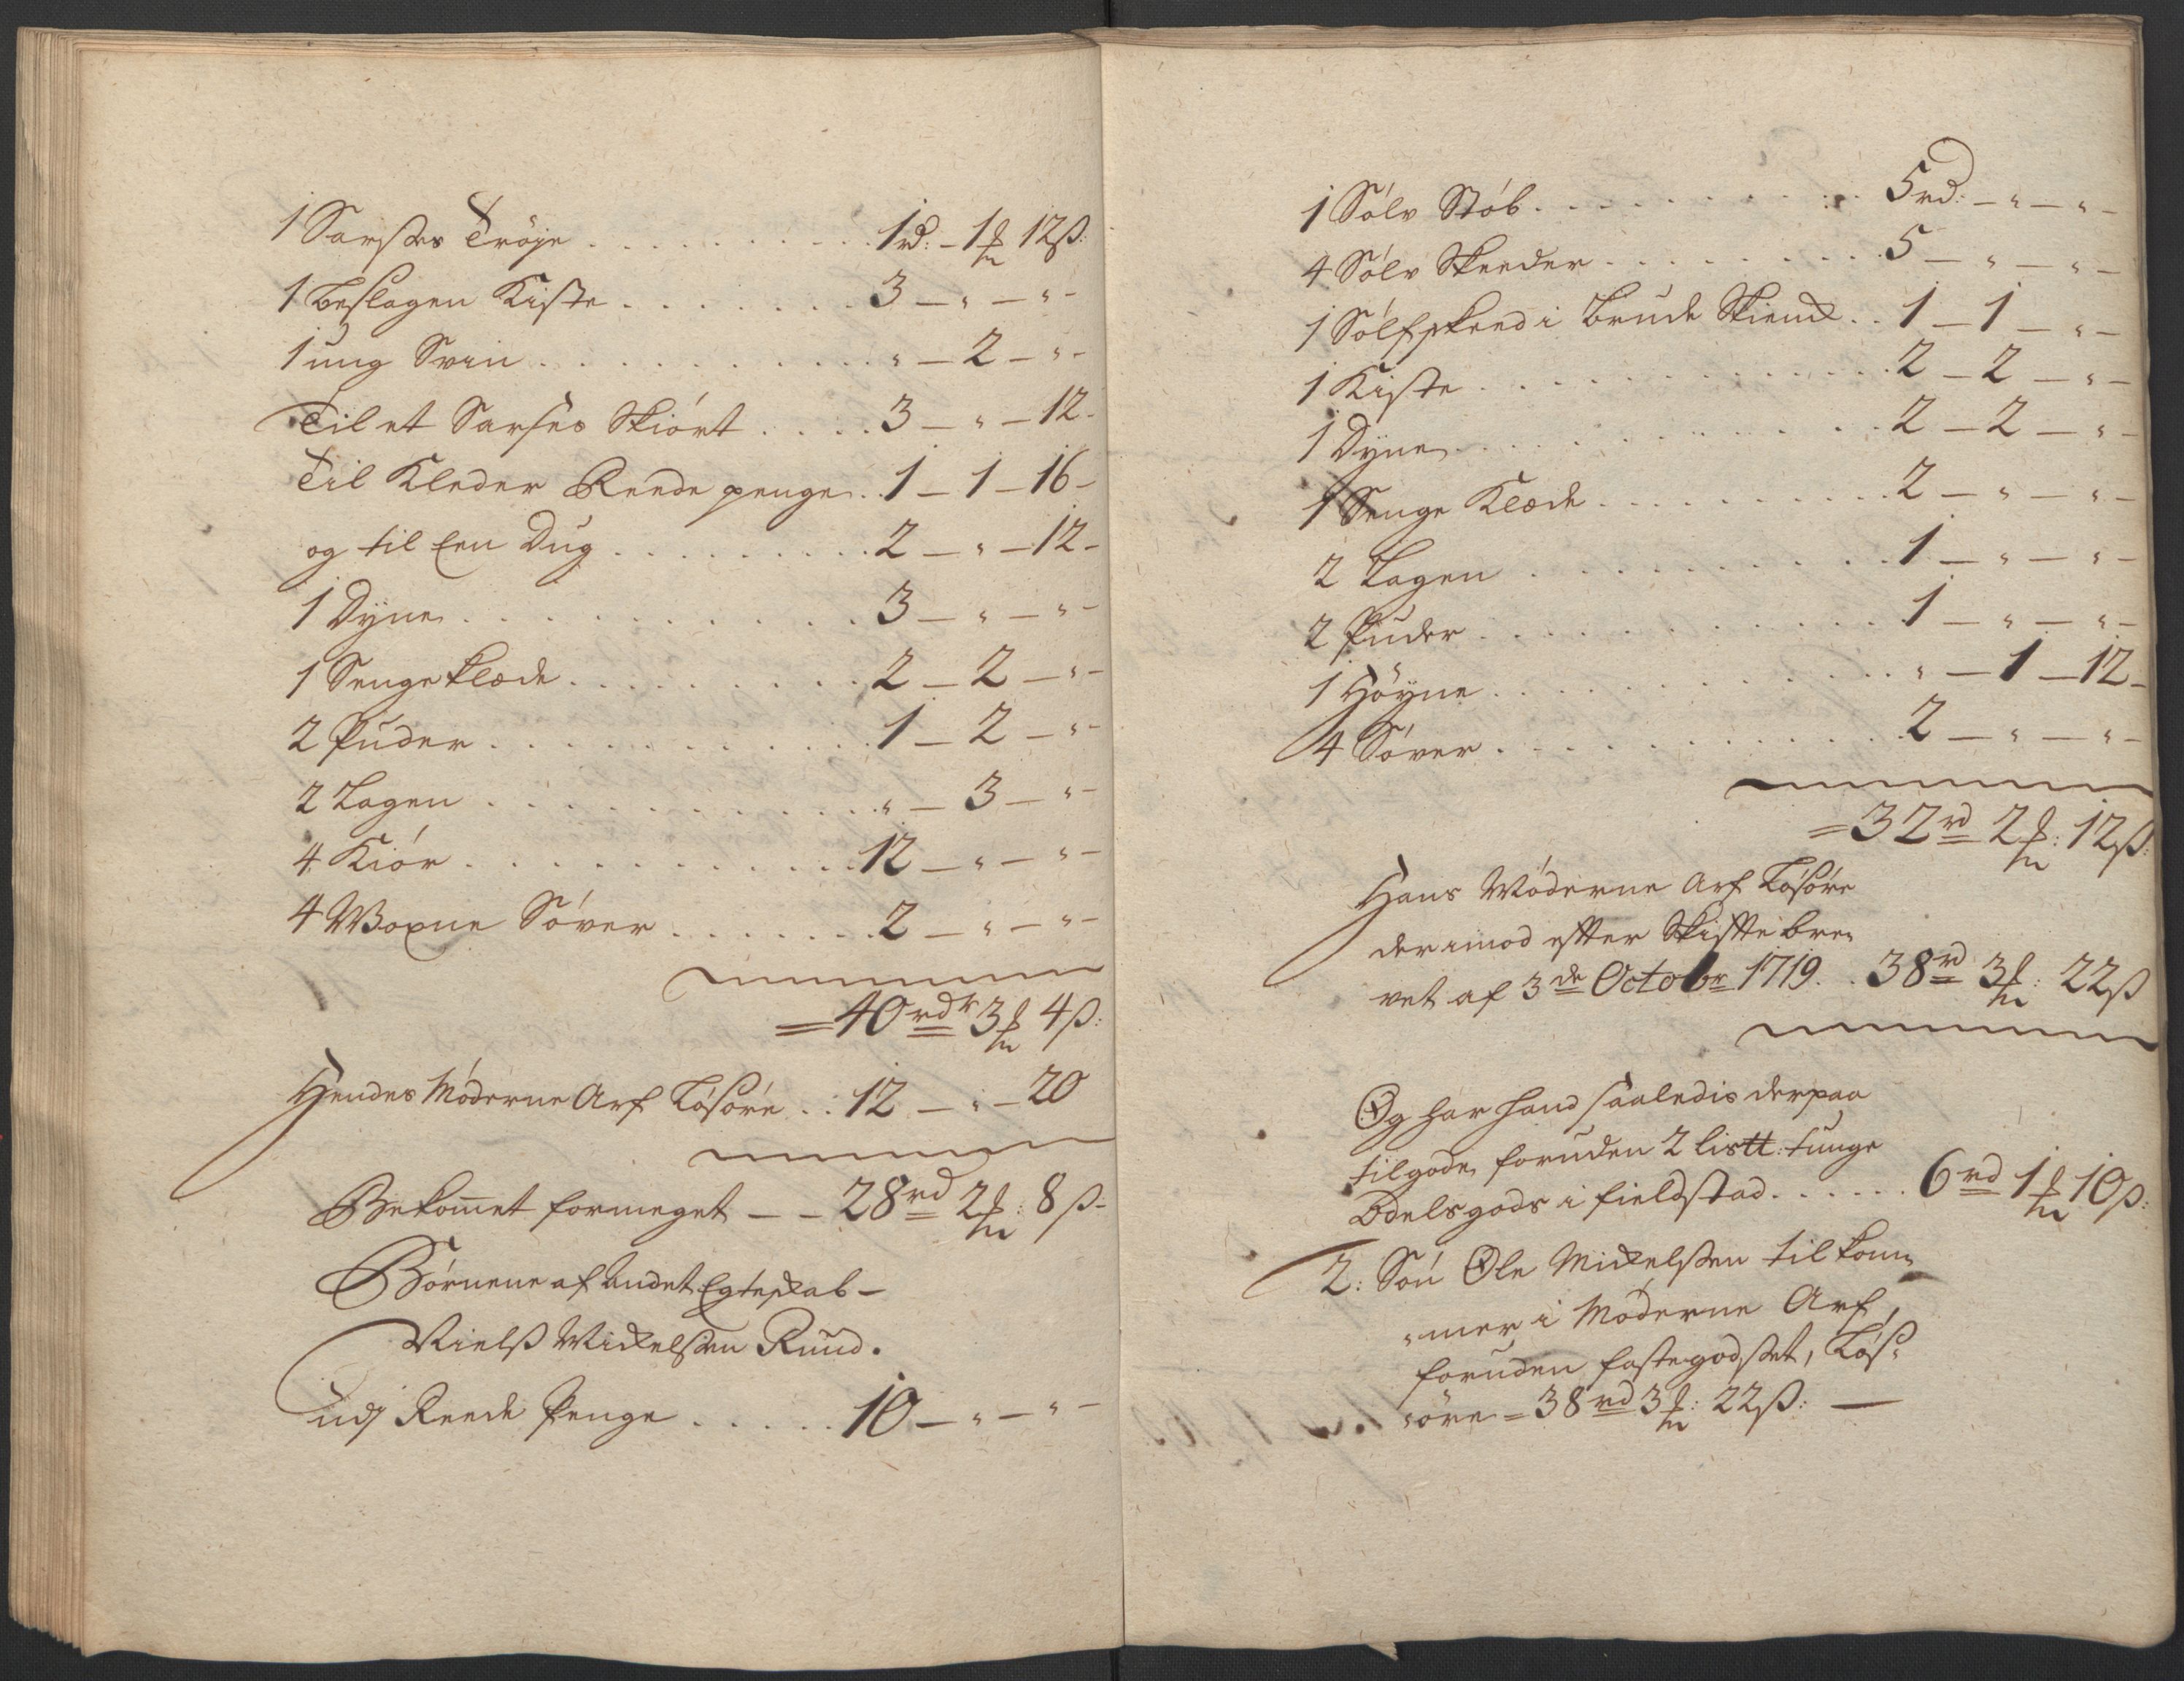 1 Sarstes Trøje . . . . . . . . . . 1rd: – 1 ℳ 12ß:
1 beslagen Kiste . . . . . . . . 3 – " – " –
1 ung Svin . . . . . . . . . . . . " – 2 – " –
Til et Sarses Skiört . . . . 3 – " – 12 –
Til Kleder Reede penge . . 1 – 1 – 16 –
og til Een Dug . . . . . . . . . 2 – " – 12 –
1 Dyne . . . . . . . . . . . . . . 3 – " – " –
1 Senge klæde . . . . . . . . . 2 – 2 – " –
2 Puder . . . . . . . . . . . . . 1 – 2 – " –
2 Lagen . . . . . . . . . . . . . " – 3 – " –
4 Kiör . . . . . . . . . . . . . . 12 – " – " –
4 Voxne Söver . . . . . . . 2 – " – " –
= 40 rdr 3 ℳ 4 ß:
Hendes Möderne Arf Løsøre . . 12 – " – 20
Bekom̄et formeget – – 28 rd 2 ℳ: 8 ß –
Börnene af Andet Egteskab –
Nielß Mickelßen Ruud.
udj Reede Penge . . . . . 10 – " – " –
1 Sölv Stöb . . . . . . . . . . 5 rd: – " – " –
4 Sölv Skeeder . . . . . . . . 5 – " – " –
1 Sölfskeed i Brude Skienk . . 1 – 1 – " –
1 Kiste . . . . . . . . . . . . . 2 – 2 – " –
1 Dyne . . . . . . . . . . . . . 2 – 2 – " –
1 Senge Klæde . . . . . . . . . 2 – " – " –
2 Lagen . . . . . . . . . . . . 1 – " – " –
2 Puder . . . . . . . . . . . . 1 – " – " –
1 Höyne . . . . . . . . . . . . " – 1 – 12 –
4 Söver . . . . . . . . . . . . 2 – " – " –
= 32 rd 2 ℳ: 12 ß:
Hans Möderne Arf Løsøre
derimod efter Skifte bre-
vet af 3de Octobr 1719 . . 38 rd 3 ℳ: 22 ß
Og har hand saaledis derpaa
tilgode, foruden 2 lis℔: tunge
Odelsgods i fieldstad . . . . . . 6 rd 1 ℳ 10 ß:
2: Sön Ole Mickelßen tilkom-
"mer i Möderne Arf,
foruden fastegodset, Løs-
"øre = 38 rd 3 ℳ: 22 ß: –